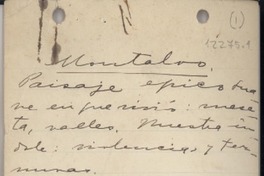 (1)
12275.1
Montalvo.
Paisaje épico sua-
ve en que vivió: mese-
ta, valles. Nuestra ín-
dole: violencias y ter-
nuras.